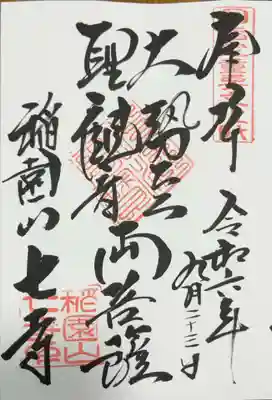 令和六年
九月二十三日
大勢至
聖観音両菩薩
稲園山七寺
稲園山